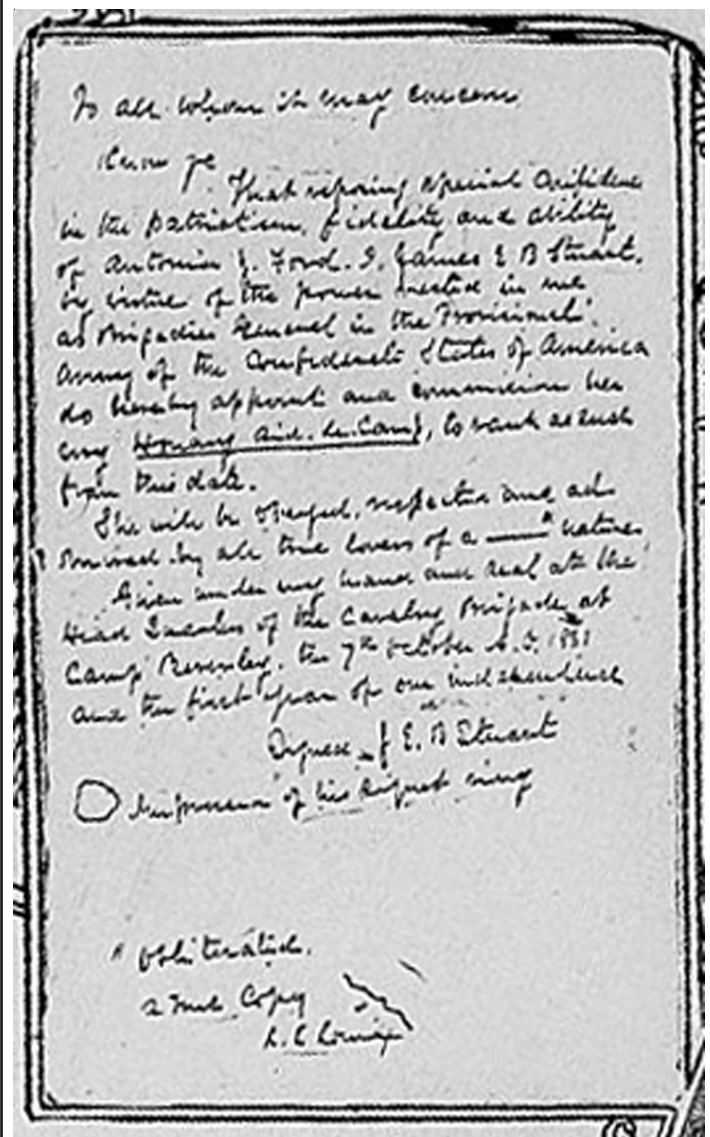 To all whom it may concern
Know ye
That reposing special confidence
in the patriotism, fidelity and ability
of Antonia J. Ford. I, James E B Stuart,
by virtue of the power vested in me
as Brigadier General in the Provisional
Army of the Confederate States of America
do hereby appoint and commission her
my Honorary Aid-de-Camp, to rank as such
from this date.
She will be obeyed, respected and ad-
mired by all true lovers of a " nature
Given under my hand and seal at the
Head Quarters of the Cavalry Brigade at
Camp Beverley, the 7th October A.D. 1861
and the first year of our independence
Signed J E. B Stuart
Impression of his signet ring
" obliterated.
a true Copy
L. C.